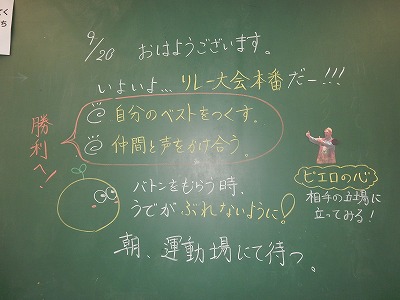 てく
ち
9/20 おはようございます。
いよいよ…リレー大会本番だー!!!
勝利へ!
自分のベストをつくす。
仲間と声をかけ合う。
バトンをもらう時、
うでがぶれないように!
ピエロの心
相手の立場に
立ってみる!
朝、運動場にて待つ。